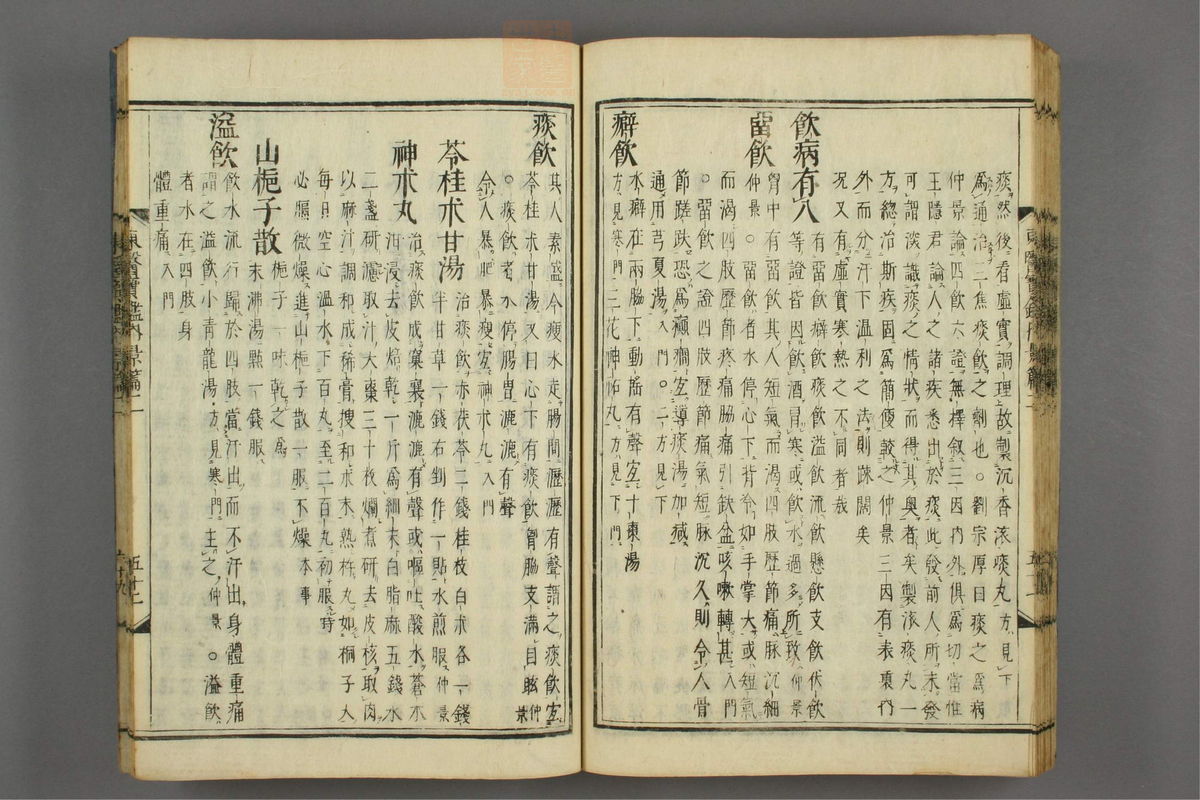 痰然後看虛實調理故製沉香滚痰丸方見下
爲通治三焦痰飮之劑也○劉宗厚曰痰之爲病
仲景論四飮六證無擇叙三因內外俱爲切當惟
王隱君論人之諸疾悉出於痰此發前人所未發
可謂深識痰之情狀而得其奧者矣製滚痰丸一
方總治斯疾固爲簡便較之仲景三因有表裏內
外而分汗下温利之法則踈闊矣
况又有虛實寒熱之不同者哉
飮病有八
有留飮癖飮痰飮溢飮流飮懸飮支飮伏飮
等證皆因飮酒冒寒或飮水過多所致仲景
留飮
胷中有留飮其人短氣而渴四肢歷節痛脉沉細
仲景○留飮者水停心下背冷如手掌大或短氣
而渴四肢歷節疼痛脇痛引缺盆咳嗽轉甚入門
○留飮之證四肢歷節痛氣短脉沉久則令人骨
節蹉跌恐爲癲癎宜導痰湯加減
通用芎夏湯入門○二方見下
癖飮
水癖在兩脇下動搖有聲宜十棗湯
方見寒門三花神祐丸方見下門
痰飮
其人素盛今瘦水走腸間瀝瀝有聲謂之痰飮宜
苓桂朮甘湯又曰心下有痰飮胷脇支滿目眩仲景
○痰飮者水停腸胃漉漉有聲
令人暴肥暴瘦宜神朮丸入門
苓桂朮甘湯
治痰飮赤茯苓二錢桂枝白朮各一錢
半甘草一錢右剉作一貼水煎服仲景
神朮丸
治痰飮成窠囊漉漉有聲或嘔吐酸水蒼朮
泔浸去皮焙乾一斤爲細末白脂麻五錢水
二盞研濾取汁大棗三十枚爛煮研去皮核取肉
以麻汁調和成稀膏搜和朮末熟杵丸如桐子大
每日空心溫水下百丸至二百丸初服時
心膈微燥進山梔子散一服不燥本事
山梔子散
梔子一味乾之爲
末沸湯點一錢服
溢飮
飮水流行歸於四肢當汗出而不汗出身體重痛
謂之溢飮小青龍湯方見寒門主之仲景○溢飮
者水在四肢身
體重痛入門